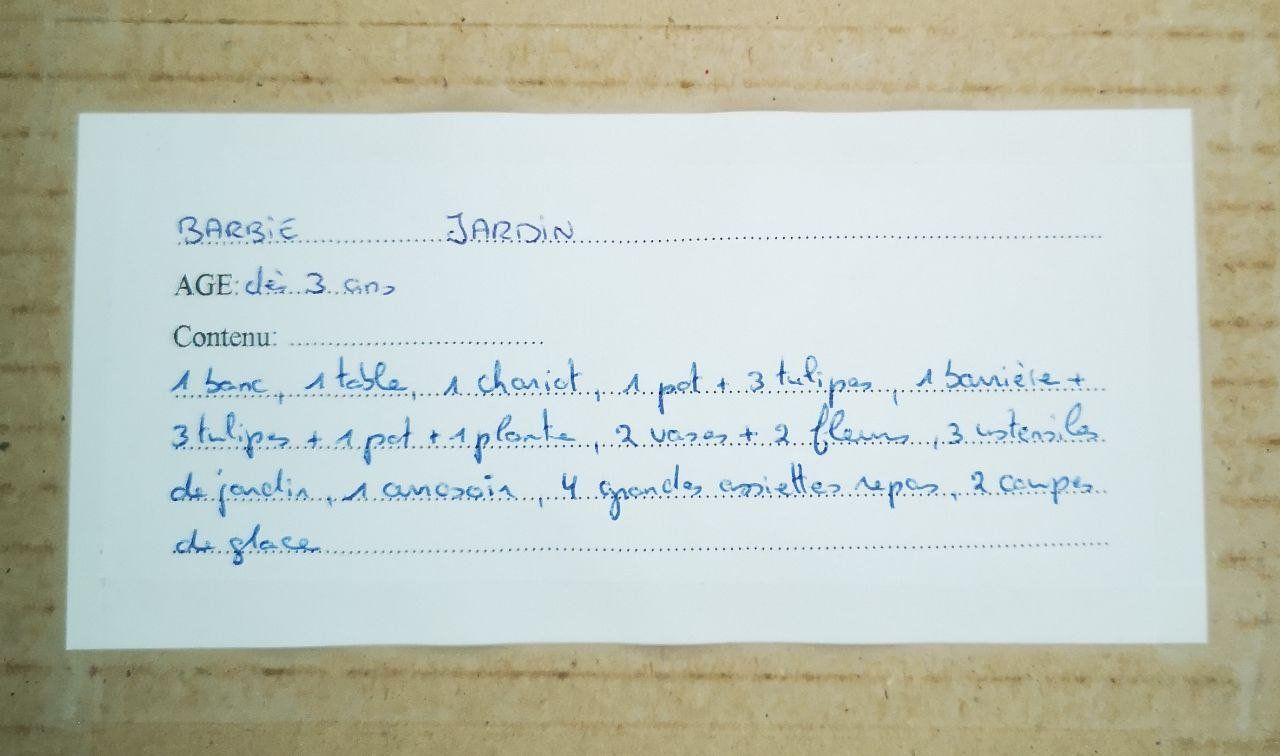 BARBiE JARDiN
AGE: dès 3 ans
Contenu:
1 banc, 1 table, 1 chariot, 1 pot + 3 tulipes, 1 barrière +
3 tulipes + 1 pot + 1 plante, 2 vases + 2 fleurs, 3 ustensiles
de jardin, 1 arrosoir, 4 grandes assiettes repas, 2 coupes
de glace